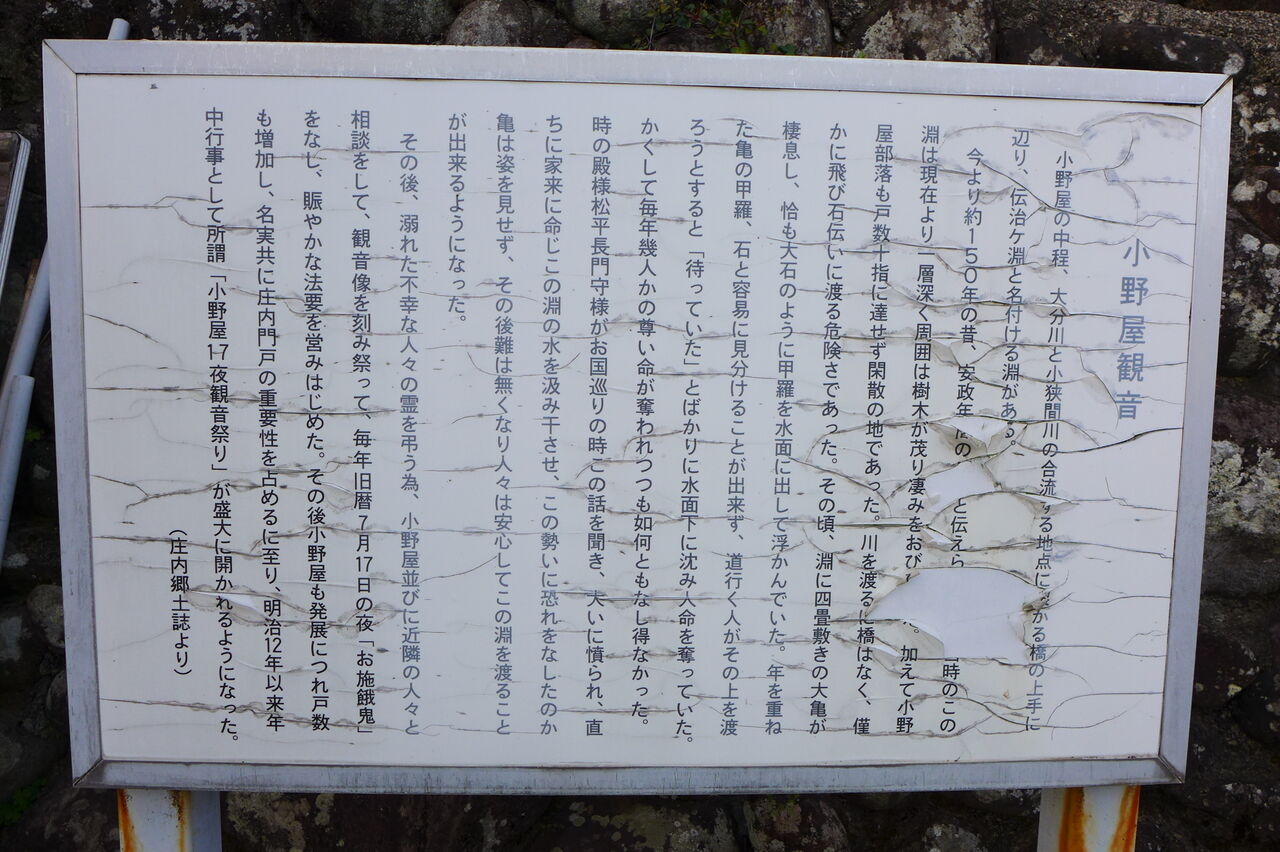 小野屋観音
小野屋の中程、大分川と小狭間川の合流する地点に かる橋の上手に
辺り、伝治ケ淵と名付ける淵がある。
今より約150年の昔、安政年間の と伝えら 時のこの
淵は現在より一層深く周囲は樹木が茂り凄みをおび 。加えて小野
屋部落も戸数十指に達せず閑散の地であった。川を渡るに橋はなく、僅
かに飛び石伝いに渡る危険さであった。その頃、淵に四畳敷きの大亀が
棲息し、恰も大石のように甲羅を水面に出して浮かんでいた。年を重ね
た亀の甲羅、石と容易に見分けることが出来ず、道行く人がその上を渡
ろうとすると「待っていた」とばかりに水面下に沈み人命を奪っていた。
かくして毎年幾人かの尊い命が奪われつつも如何ともなし得なかった。
時の殿様松平長門守様がお国巡りの時この話を聞き、大いに憤られ、直
ちに家来に命じこの淵の水を汲み干させ、この勢いに恐れをなしたのか
亀は姿を見せず、その後難は無くなり人々は安心してこの淵を渡ること
が出来るようになった。
その後、溺れた不幸な人々の霊を弔う為、小野屋並びに近隣の人々と
相談をして、観音像を刻み祭って、毎年旧暦7月17日の夜「お施餓鬼」
をなし、賑やかな法要を営みはじめた。その後小野屋も発展につれ戸数
も増加し、名実共に庄内門戸の重要性を占めるに至り、明治12年以来年
中行事として所謂「小野屋17夜観音祭り」が盛大に開かれるようになった。
（庄内郷土誌より）